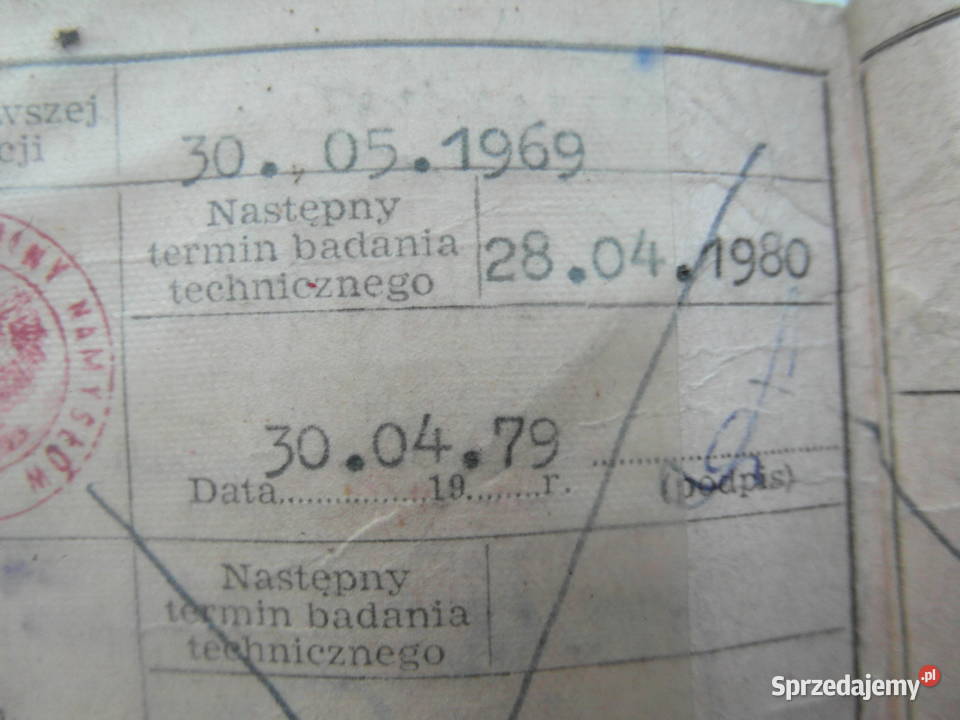 30. 05.1969
Następny
termin badania
technicznego
28.04.1980
NAMYSŁÓW
30.04.79
Data................19........r.
(podpis)
Następny
termin badania
technicznego
Sprzedajemy.pl